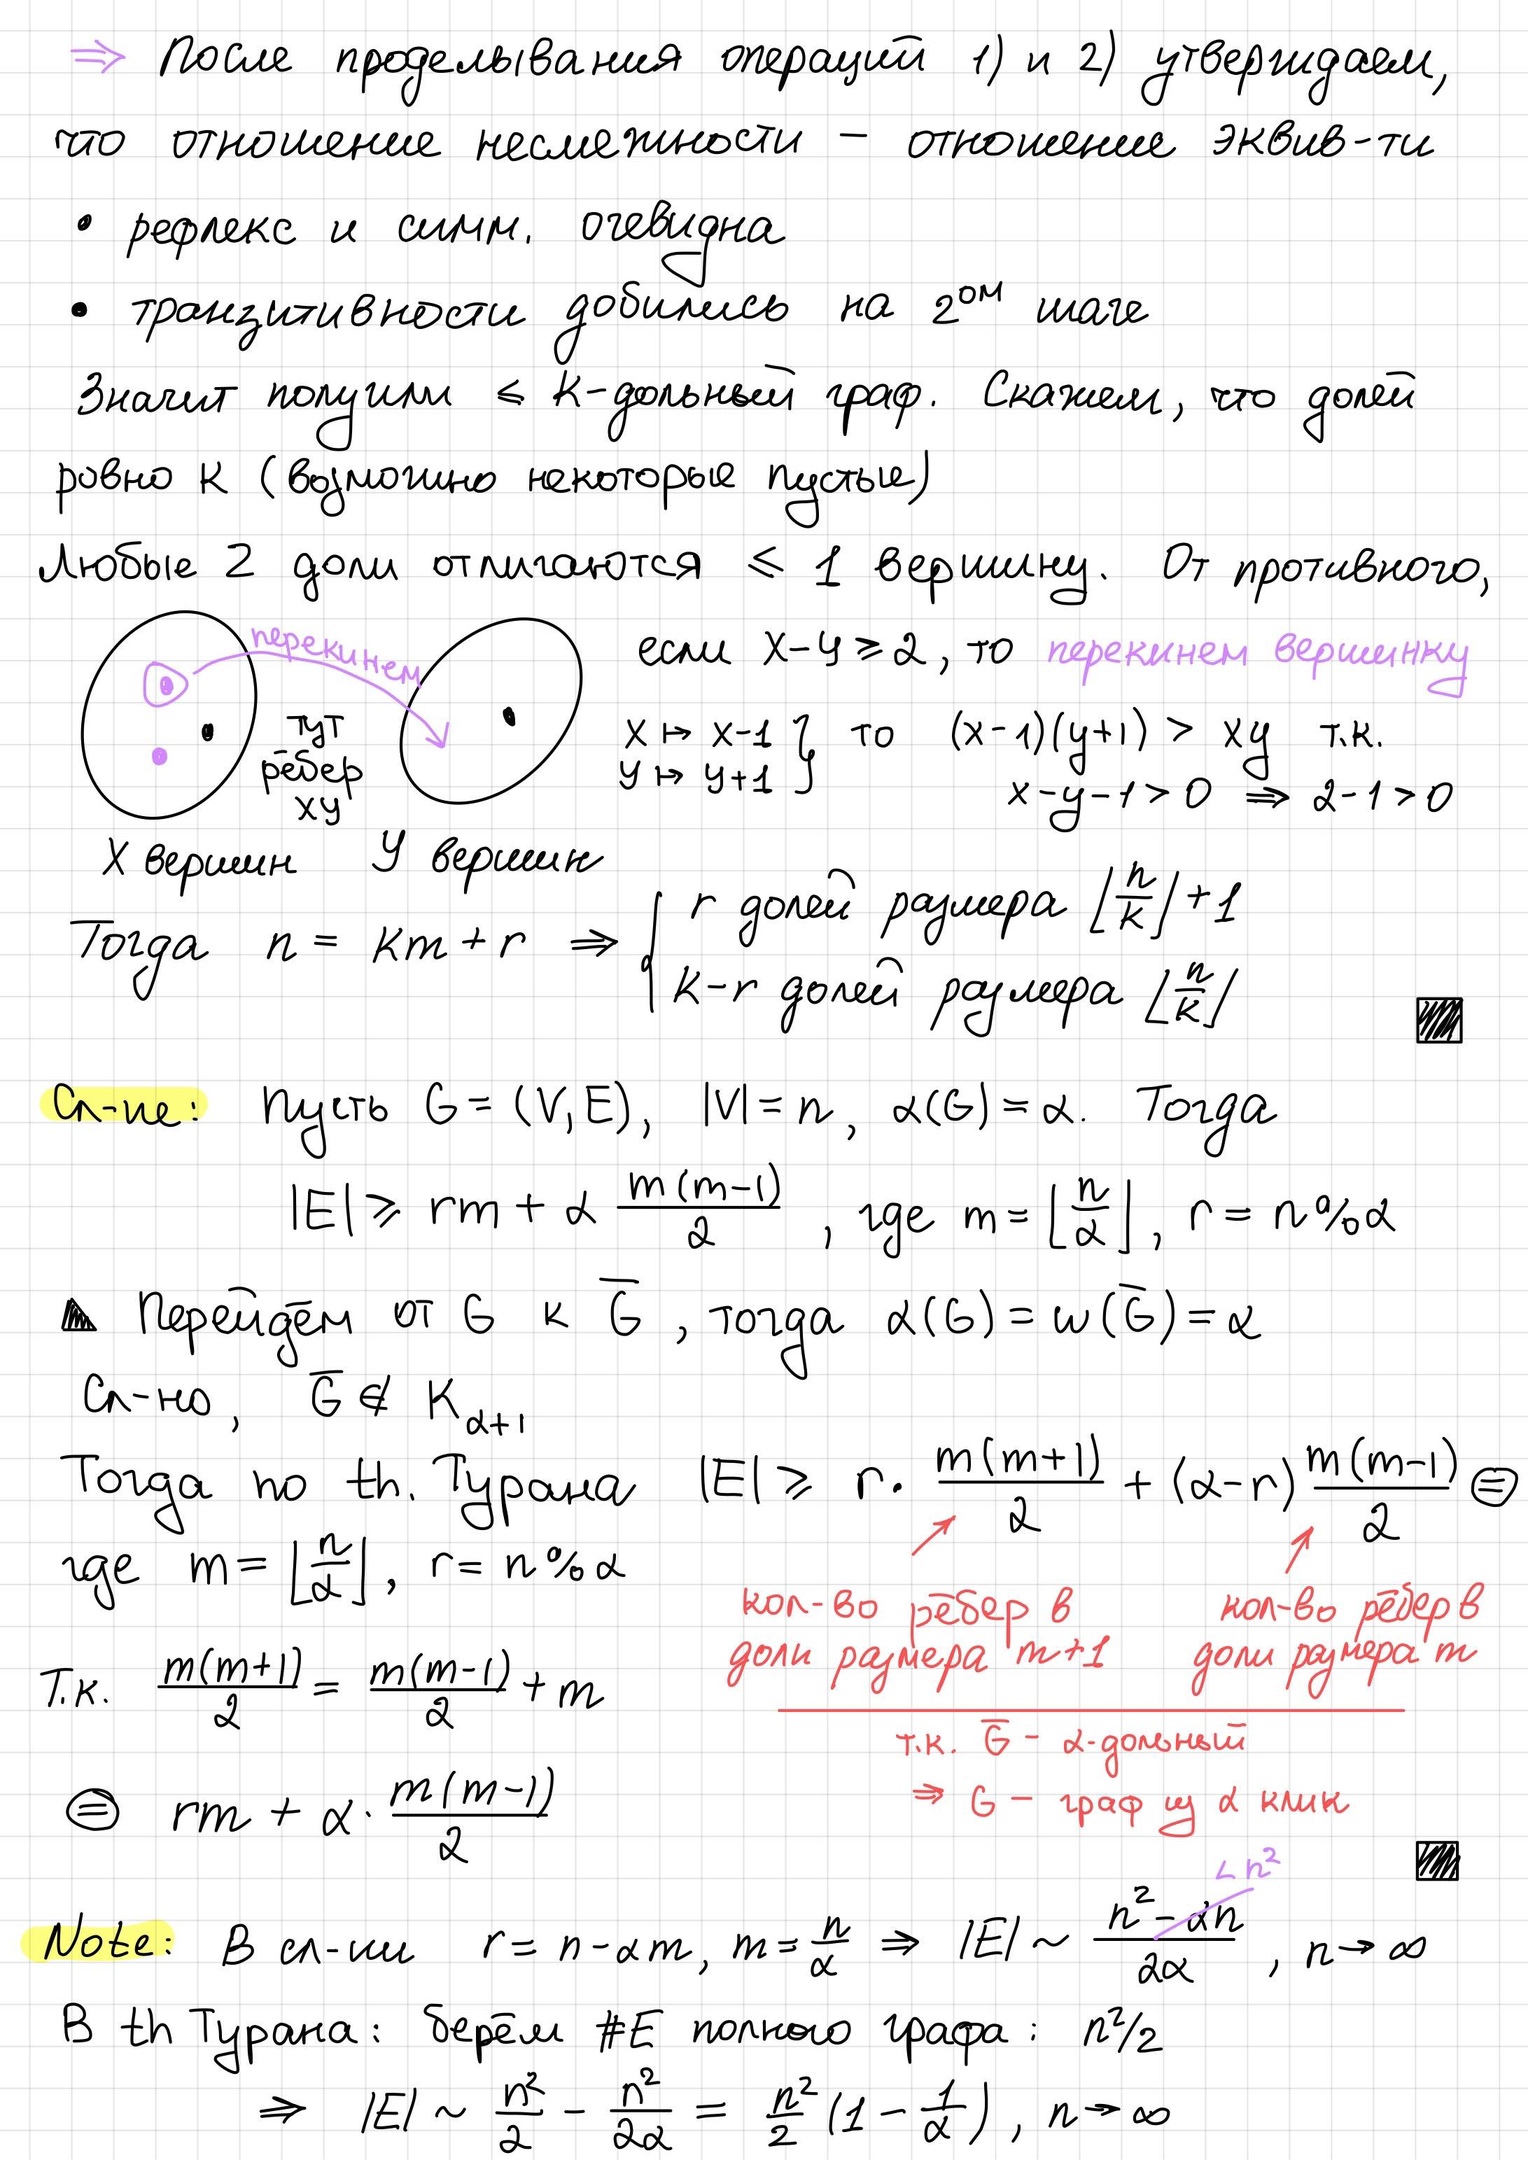 ⇒ После проделывания операций 1) и 2) утверждаем,
что отношение несмежности – отношение эквив-ти
• рефлекс и симм. очевидна
• транзитивности добились на 2ом шаге
Значит получили ⩽ K-дольный граф. Скажем, что долей
ровно K (возможно некоторые пустые)
Любые 2 доли отличаются ⩽ 1 вершину. От противного,
если x-y ⩾ 2, то перекинем вершинку
перекинем
тут
рёбер
xy
x ↦ x-1
y ↦ y+1
} то (x-1)(y+1) > xy т.к.
x-y-1>0 ⇒ 2-1>0
X вершин У вершин
Тогда n = Km + r ⇒ { r долей размера ⌊n/k⌋+1
K-r долей размера ⌊n/k⌋
Сл-ие: Пусть G = (V,E), |V| = n, α(G) = α. Тогда
|E| ⩾ rm + α m(m-1)/2, где m = ⌊n/α⌋, r = n%α
Перейдём от G к G̅, тогда α(G) = w(G̅) = α
Сл-но, G̅ ∉ K_{α+1}
Тогда по th. Турана |E| ⩾ r· m(m+1)/2 + (α-r) m(m-1)/2 ⊜
где m = ⌊n/α⌋, r = n%α
кол-во рёбер в
доли размера m+1
кол-во рёбер в
доли размера m
Т.к. m(m+1)/2 = m(m-1)/2 + m
т.к. G̅ - α-дольный
⇒ G – граф из α клик
⊜ rm + α· m(m-1)/2
∠ n²
Note: В сл-ии r = n-αm, m = n/α ⇒ |E| ~ (n²-αn)/2α, n→∞
В th Турана: берём #E полного графа: n²/2
⇒ |E| ~ n²/2 - n²/2α = n²/2 (1 - 1/α), n→∞